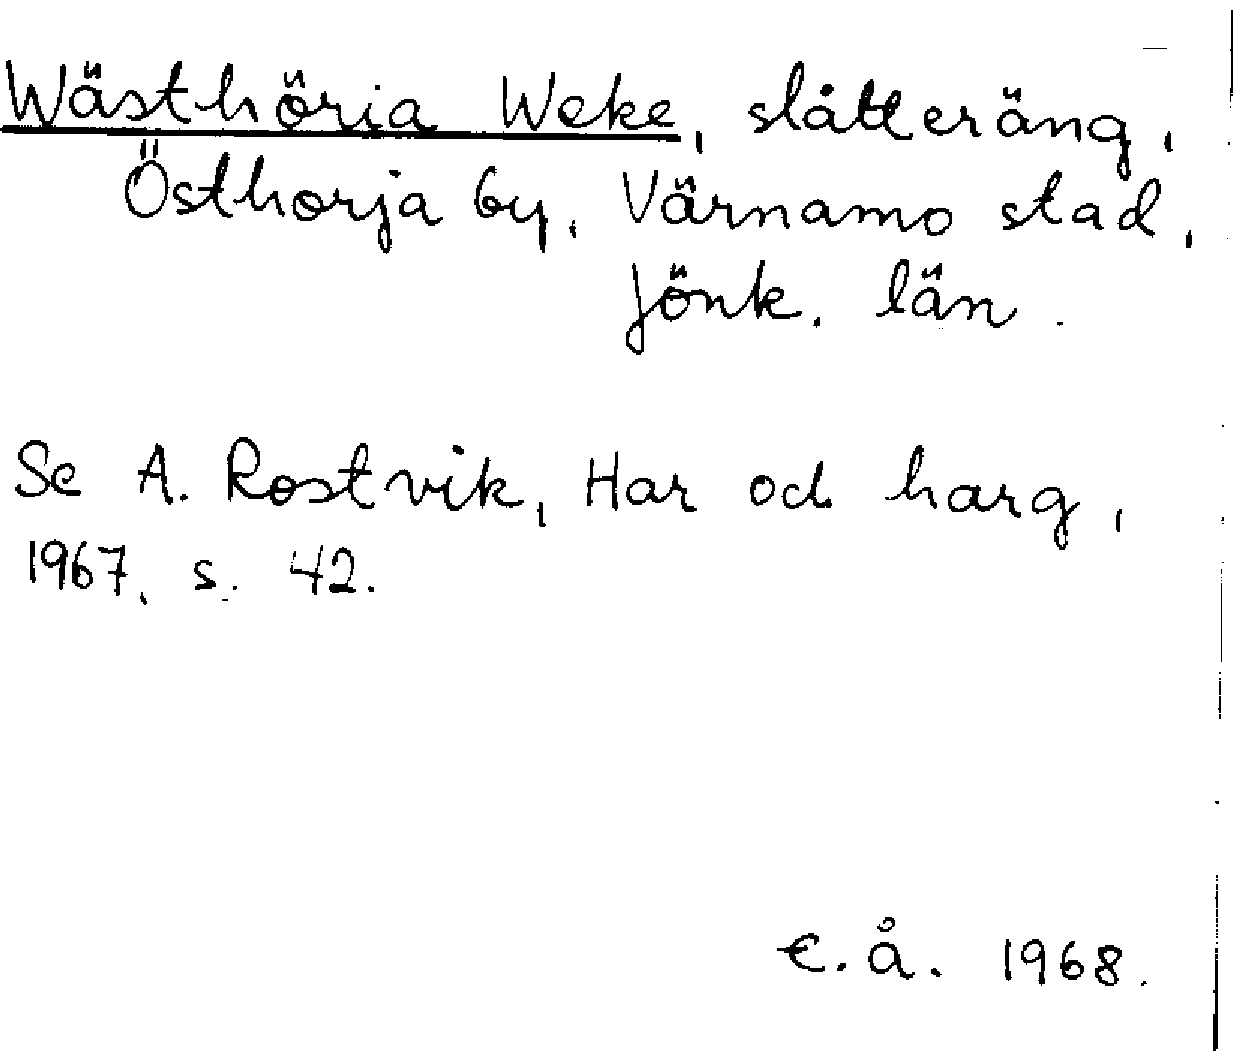 Wästhöria Weke, slåtteräng,
Östhorja by, Värnamo stad,
Jönk. län.
Se A. Rostvik, Har och harg,
1967, s. 42.
E.Å. 1968.